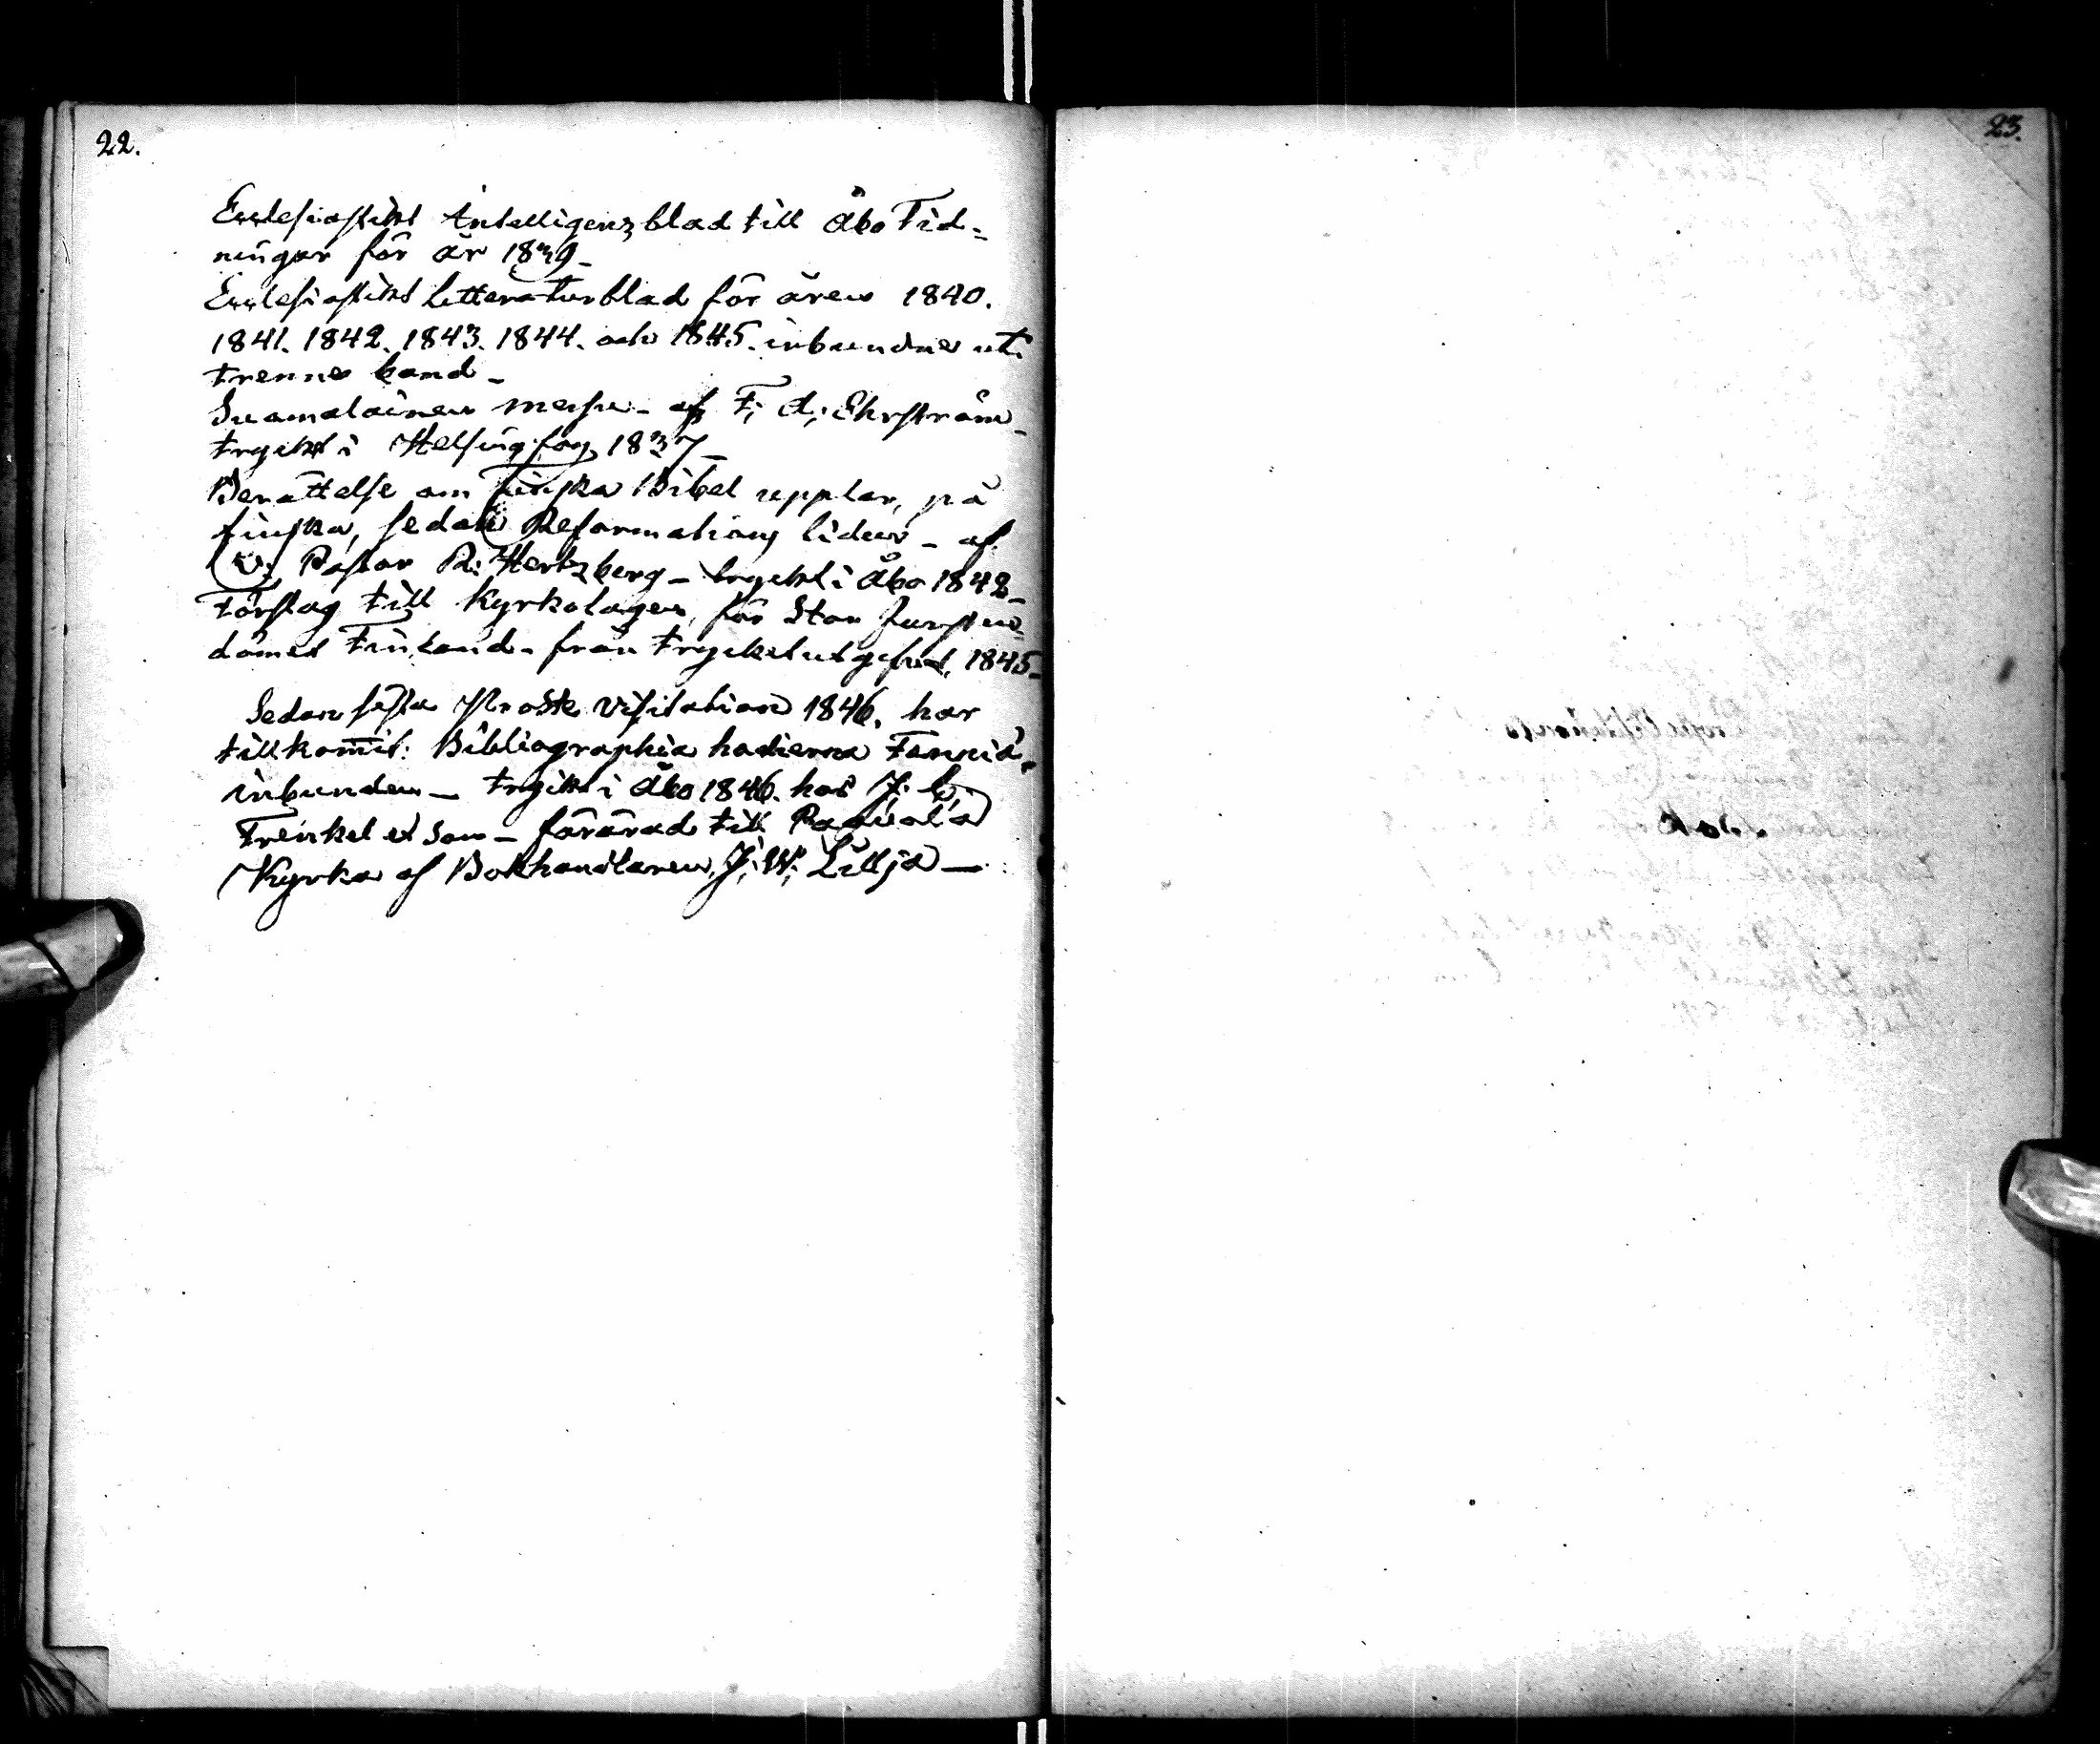 22.
Ecclesiastikt Intelligenzblad till Åbo Tid-
ningar för år 1839 -
Ecclesiastikt Litteraturblad för åren 1840.
1841. 1842. 1843. 1844. och 1845. inbundne uti
trenne band -
Suomalainen messu - af F. A. Ehrström -
trykt i Helsingfors 1837 -
Berättelse om Finska Bibel upplar, på
finska, sedan Reformations tiden - af
V. Pastor R. Hertzberg - trykt i Åbo 1842 -
Förslag till Kyrkolagen, för Stor Fursten-
dömet Finland - från trycket utgifvet, 1845 -
Sedan sista Prosте Visitation 1846. har
tillkom̄it: Bibliographia hodierna Fennia,
inbunden - trykt i Åbo 1846. hos J. C.
Frenkel et Son - förärad till
Kyrka af Bokhandlaren J. W. Lillja -
23.